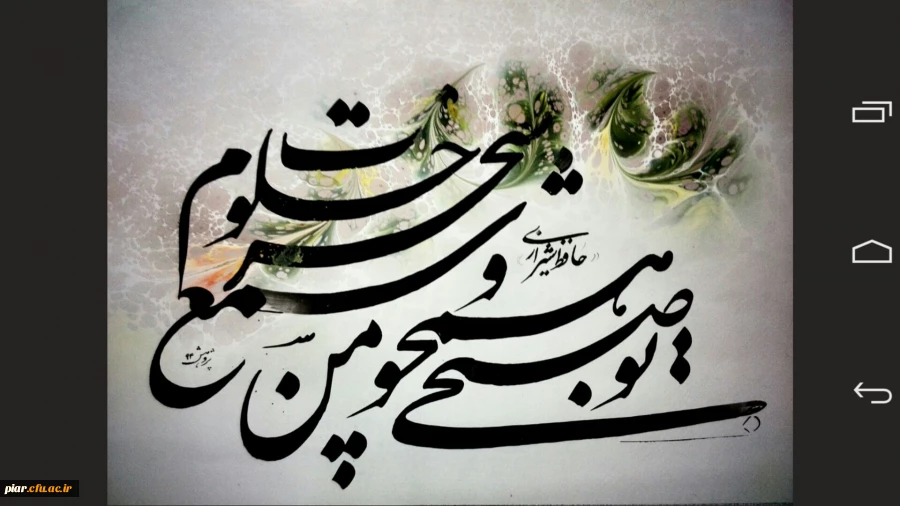 تو همچو صبحی و من شمع خلوت سحرم
حافظ شیرازی
piar.cfu.ac.ir